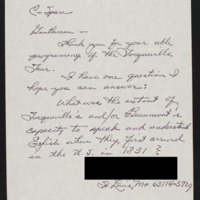 C-Span
Gentlemen -
Thank you for your able
programing of the Tocqueville
Tour.
I have one question I
hope you can answer:
What was the extent of
Tocqueville's and/or Beaumont's
capacity to speak and understand
English when they first arrived
in the U.S. in 1831?
St Louis, Mo. 63114-5729